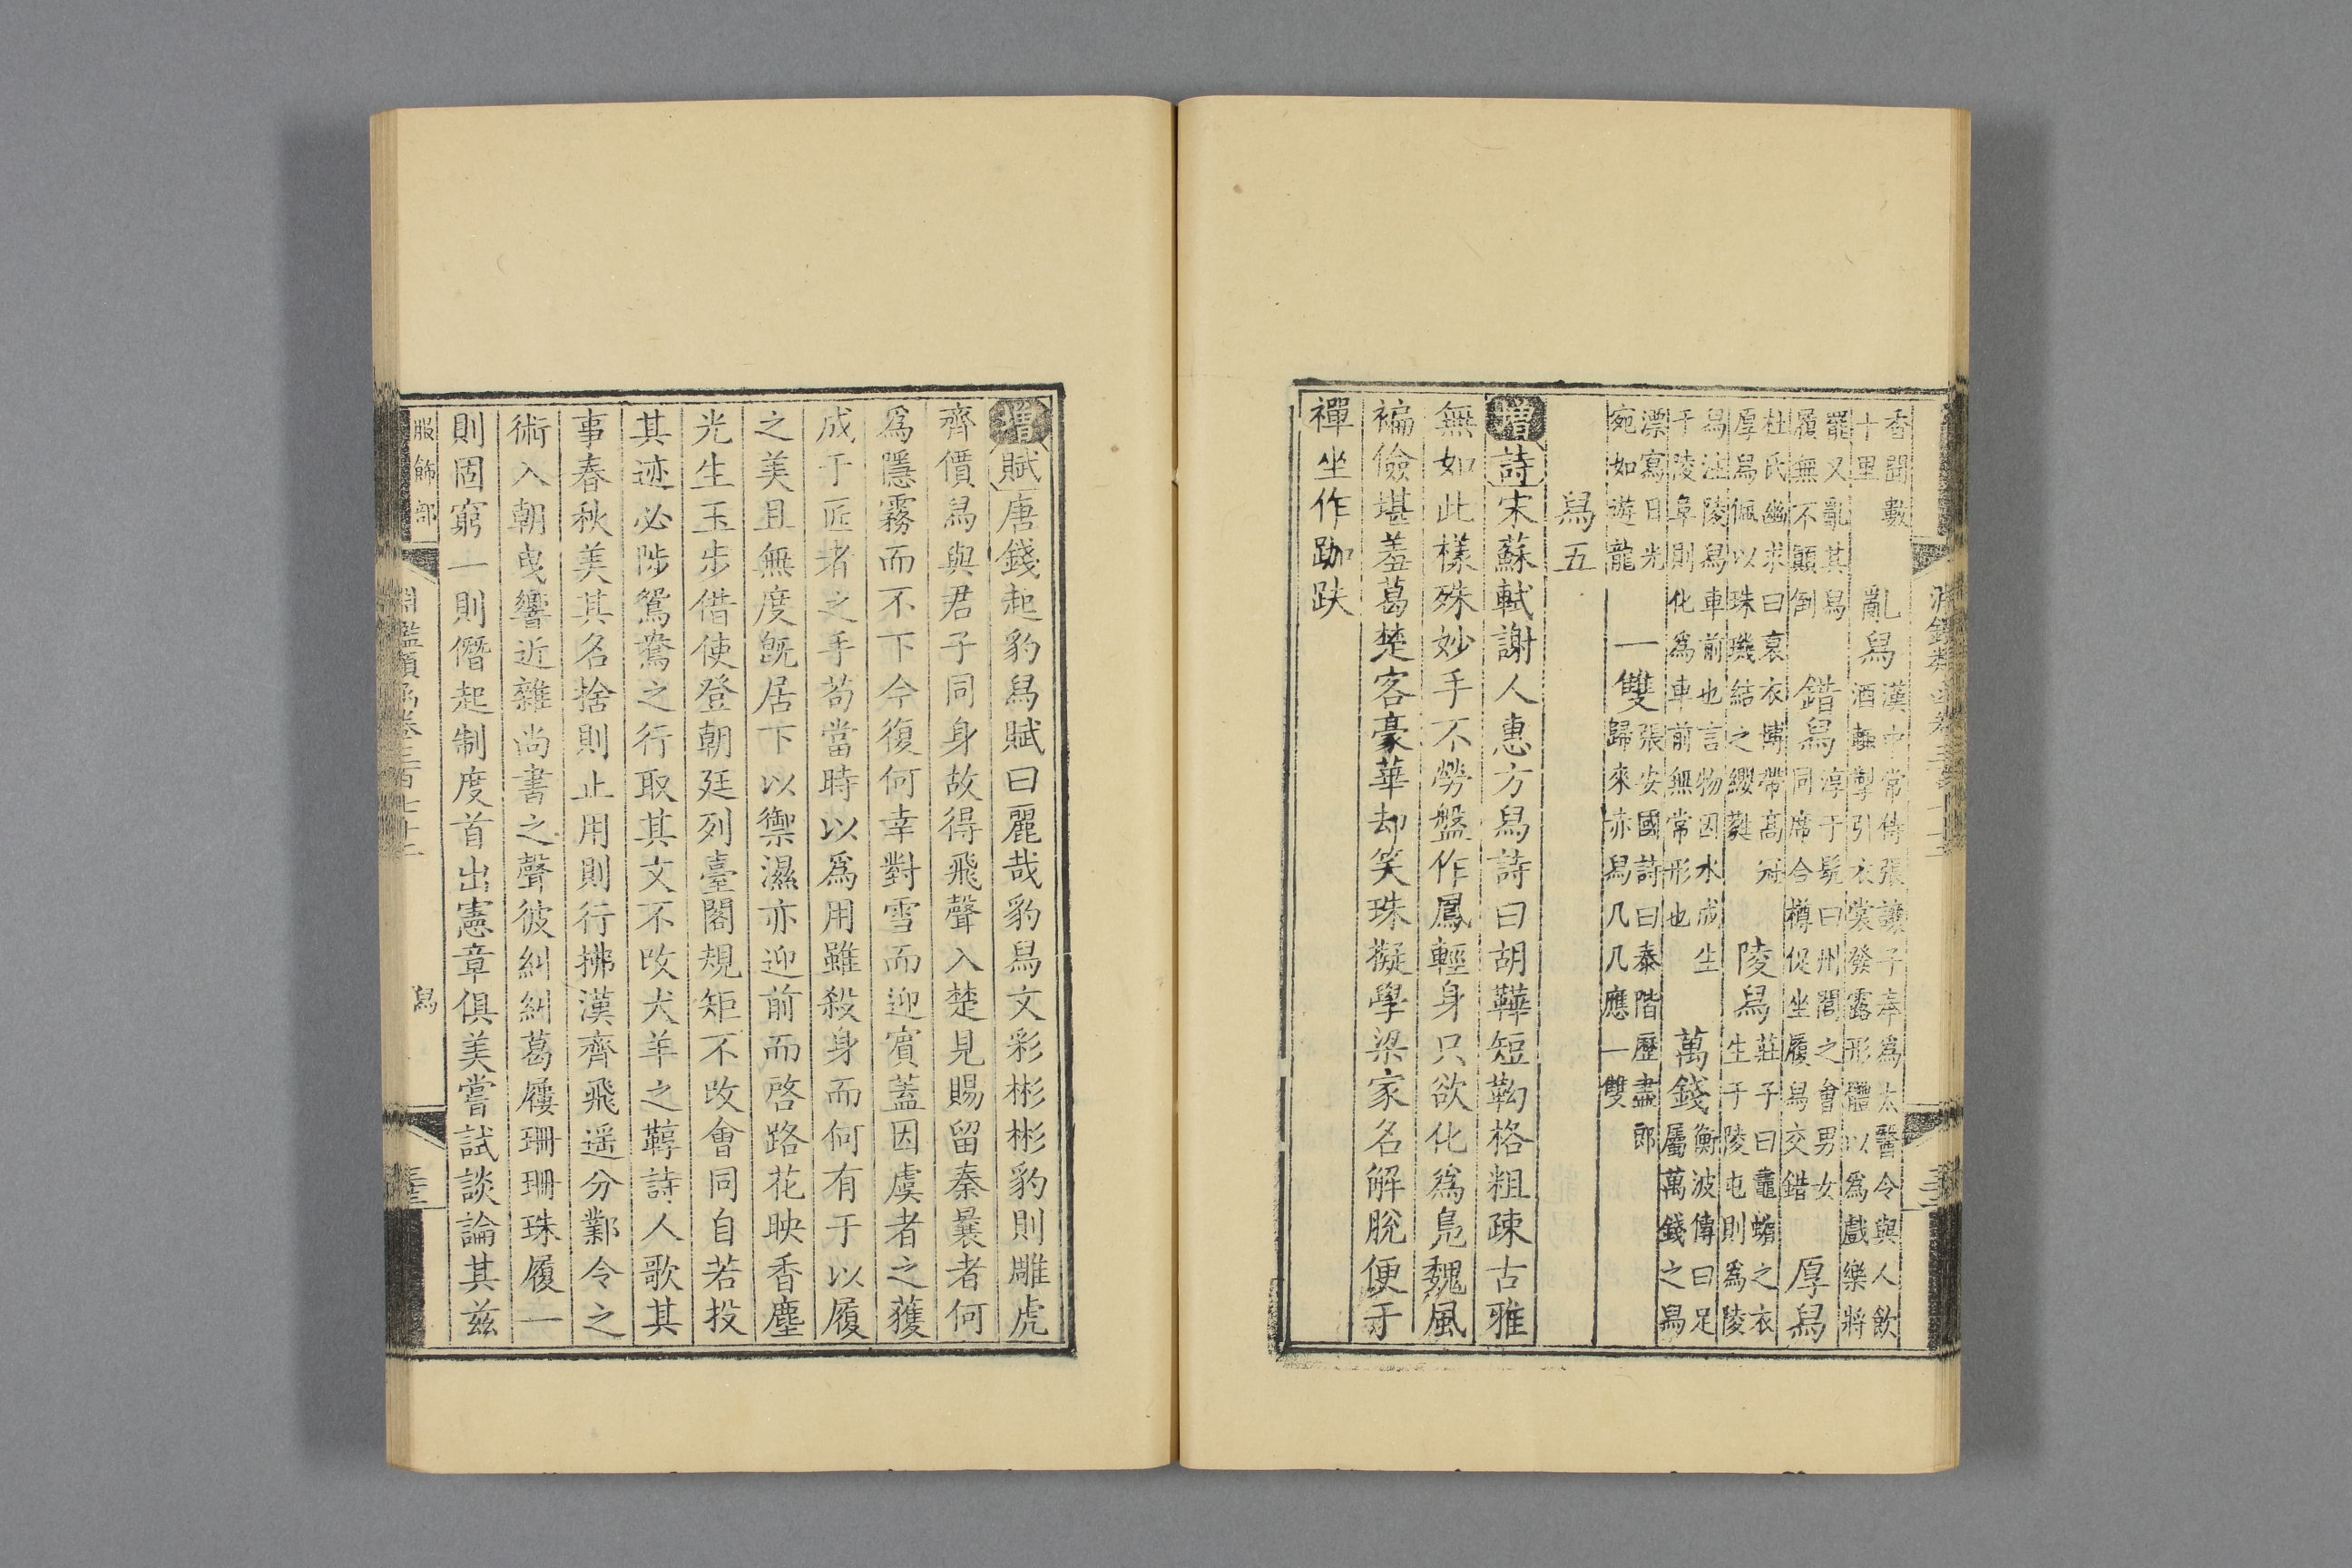 香聞數十里　亂舄　漢中常侍張讓子奉爲太醫令與人飲酒輒掣引衣裳發露形體以爲戲樂將
罷又亂其舄履無不顛倒　錯舄　淳于髡曰州閭之會男女同席合樽促坐履舄交錯　厚舄
杜氏幽求曰裒衣博帶高冠厚舄佩以珠璣結之纓蕤　陵舄　莊子曰鼃蠙之衣生于陵屯則爲陵
舄注陵舄車前也言物因水成生于陵阜則化爲車前無常形也　萬錢　衡波傳曰足屬萬錢之舄
漂寫日光宛如遊龍　一雙　張安國詩曰泰階歷盡郎歸來亦舄几几應一雙
舄五
增詩宋蘇軾謝人惠方舄詩曰胡鞾短靿格粗疎古雅
無如此樣殊妙手不勞盤作鳳輕身只欲化爲鳧魏風
褊儉堪羞葛楚客豪華却笑珠擬學梁家名解脫便于
禪坐作跏趺
增賦唐錢起豹舄賦曰麗哉豹舄文彩彬彬豹則雕虎
齊價舄與君子同身故得飛聲入楚見賜留秦曩者何
爲隱霧而不下今復何幸對雪而迎賓蓋因虞者之獲
成于匠者之手苟當時以爲用雖殺身而何有于以履
之美且無度旣居下以禦濕亦迎前而啓路花映香塵
光生玉步借使登朝廷列臺閣規矩不改會同自若投
其迹必陟鴛鷺之行取其文不改犬羊之鞹詩人歌其
事春秋美其名捨則止用則行拂漢齊飛遥分鄴令之
術入朝曳響近雜尚書之聲彼糾糾葛屨珊珊珠履一
則固窮一則僭起制度首出憲章俱美嘗試談論其茲
服飾部
淵鑑類函卷三百七十二
舄